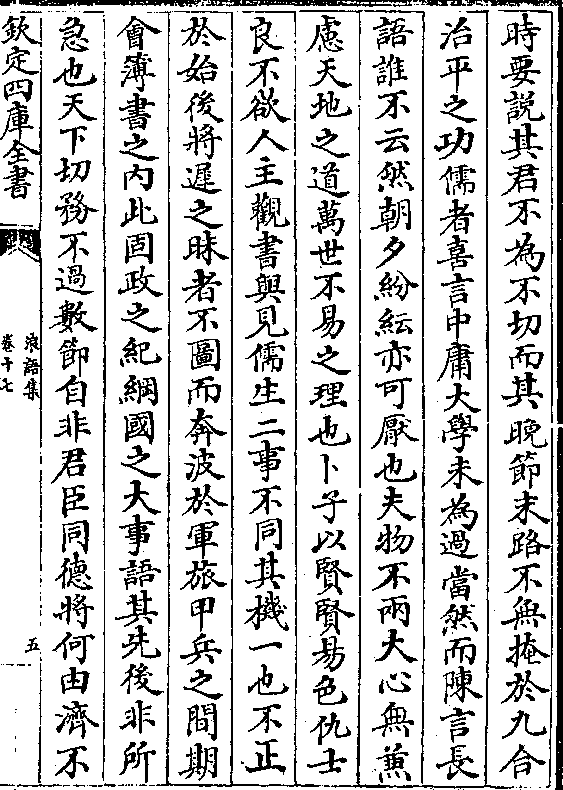 時要説其君不為不切而其晚節末路不無掩於九合
治平之功儒者喜言中庸大學未為過當然而陳言長
語誰不云然朝夕紛紜亦可厭也夫物不兩大心無兼
慮天地之道萬世不易之理也卜子以賢賢易色仇士
良不欲人主觀書與見儒生二事不同其機一也不正
於始後將遲之昧者不圖而奔波於軍旅甲兵之間期
㑹簿書之内此固政之紀綱國之大事語其先後非所
急也天下切務不過數節自非君臣同德將何由濟不
欽定四庫全書
浪語集
卷十七
五